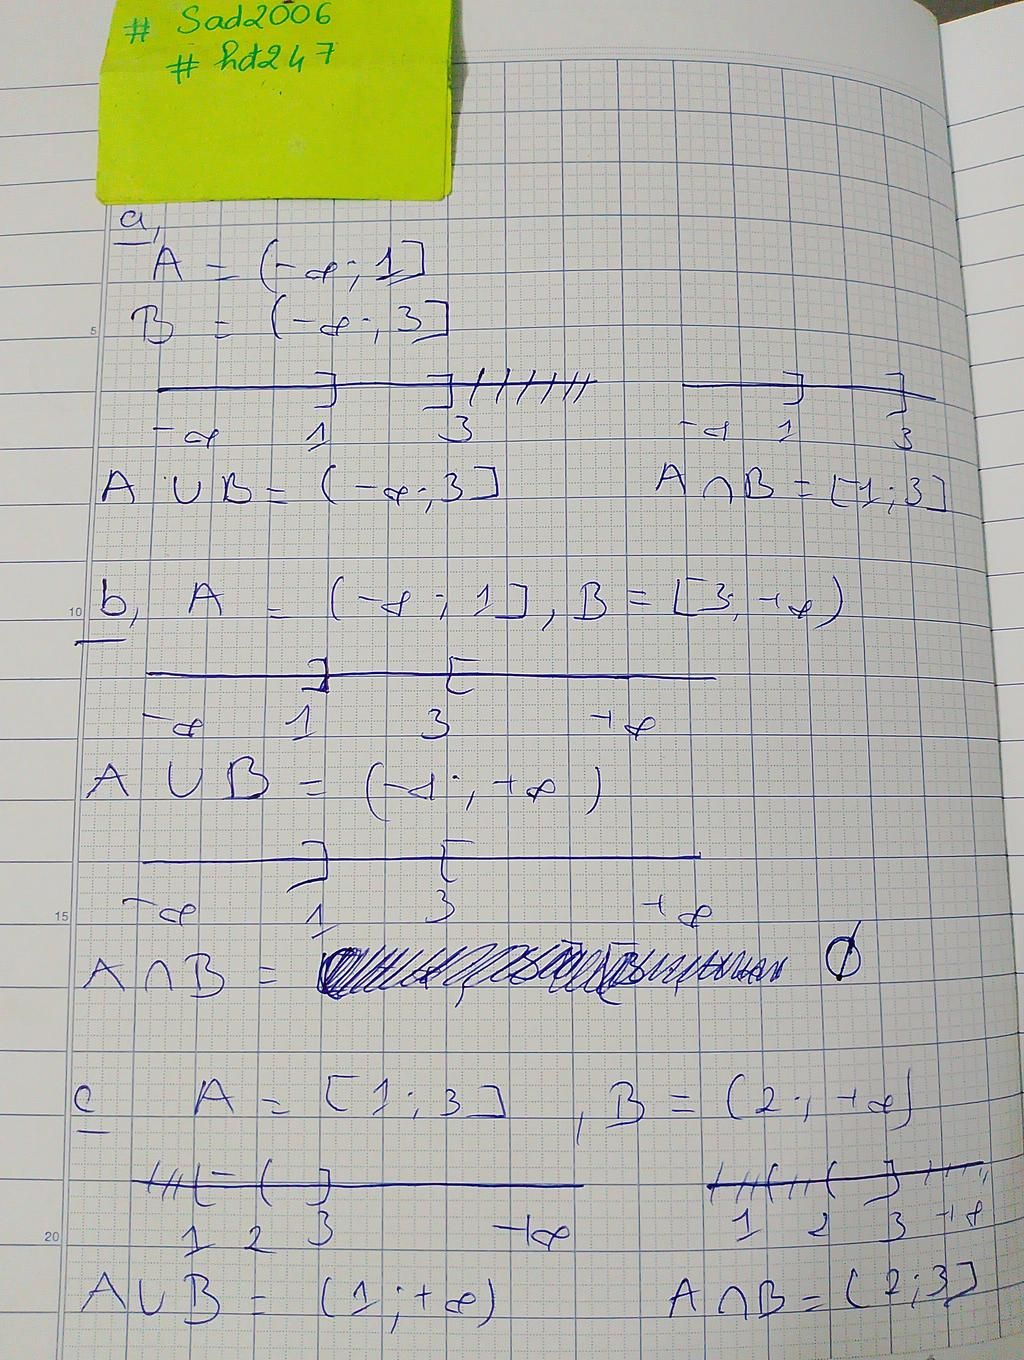 # Sad2006
# hd247
a,
A = (-∞; 1]
B = (-∞; 3]
-∞ 1 3 -∞ 1 3
A ∪ B = (-∞; 3] A ∩ B = [1; 3]
b, A = (-∞; 1], B = [3; +∞)
-∞ 1 3 +∞
A ∪ B = (-∞; +∞)
-∞ 1 3 +∞
A ∩ B = Ø
c A = [1; 3], B = (2; +∞)
1 2 3 +∞ 1 2 3 +∞
A ∪ B = (1; +∞) A ∩ B = (2; 3]
5
10
15
20